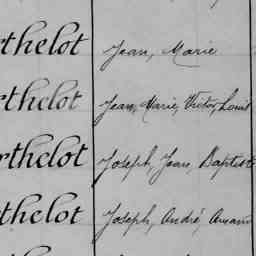 rthelot Jean, Marie
rthelot Jean, Marie, Victor, Louis
rthelot Joseph, Jean, Baptiste
rthelot Joseph, André, Amand